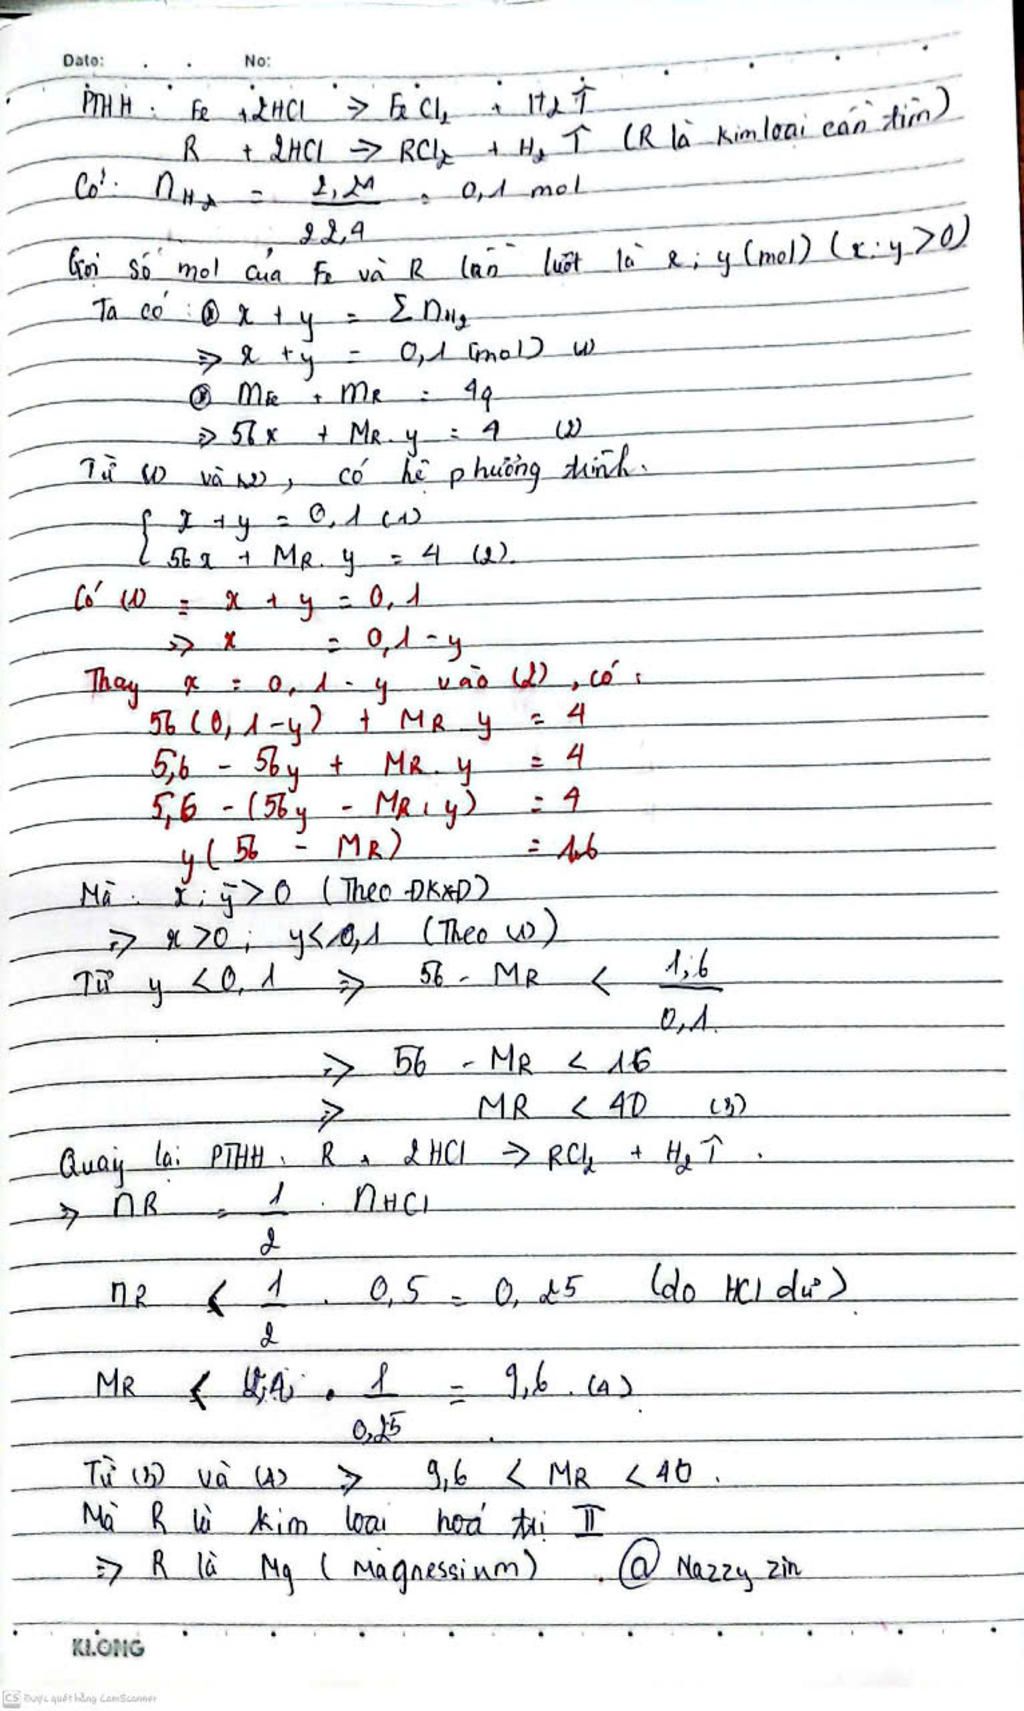 Date: . . No:
PTHH: Fe + 2HCl => FeCl2 + H2 ↑
R + 2HCl => RCl2 + H2 ↑ (R là kim loại cần tìm)
Có: nH2 = 2,24 / 22,4 = 0,1 mol
Gọi số mol của Fe và R lần lượt là x; y (mol) (x; y > 0)
Ta có: ⊗ x + y = Σ nH2
=> x + y = 0,1 (mol) (1)
⊗ mFe + mR = 4g
=> 56x + MR. y = 4 (2)
Từ (1) và (2), có hệ phương trình.
{ x + y = 0,1 (1)
56x + MR. y = 4 (2).
Có (1) = x + y = 0,1
=> x = 0,1 - y
Thay x = 0,1 - y vào (2), có:
56(0,1-y) + MR. y = 4
5,6 - 56y + MR. y = 4
5,6 - (56y - MR.y) = 4
y(56 - MR) = 1,6
Mà: x; y > 0 (Theo ĐKXĐ)
=> x > 0; y < 0,1 (Theo (1))
Từ y < 0,1 => 56 - MR < 1,6 / 0,1.
=> 56 - MR < 16
=> MR < 40 (3)
Quay lại PTHH: R + 2HCl => RCl2 + H2 ↑.
=> nR = 1/2 . nHCl
nR < 1/2 . 0,5 = 0,25 (do HCl dư)
MR < . 1 / 0,25 = 9,6. (4)
Từ (3) và (4) => 9,6 < MR < 40.
Mà R là kim loại hoá trị II
=> R là Mg (Magnessium) . @ Nazzy zin
KLONG
CS Được quét bằng CamScanner